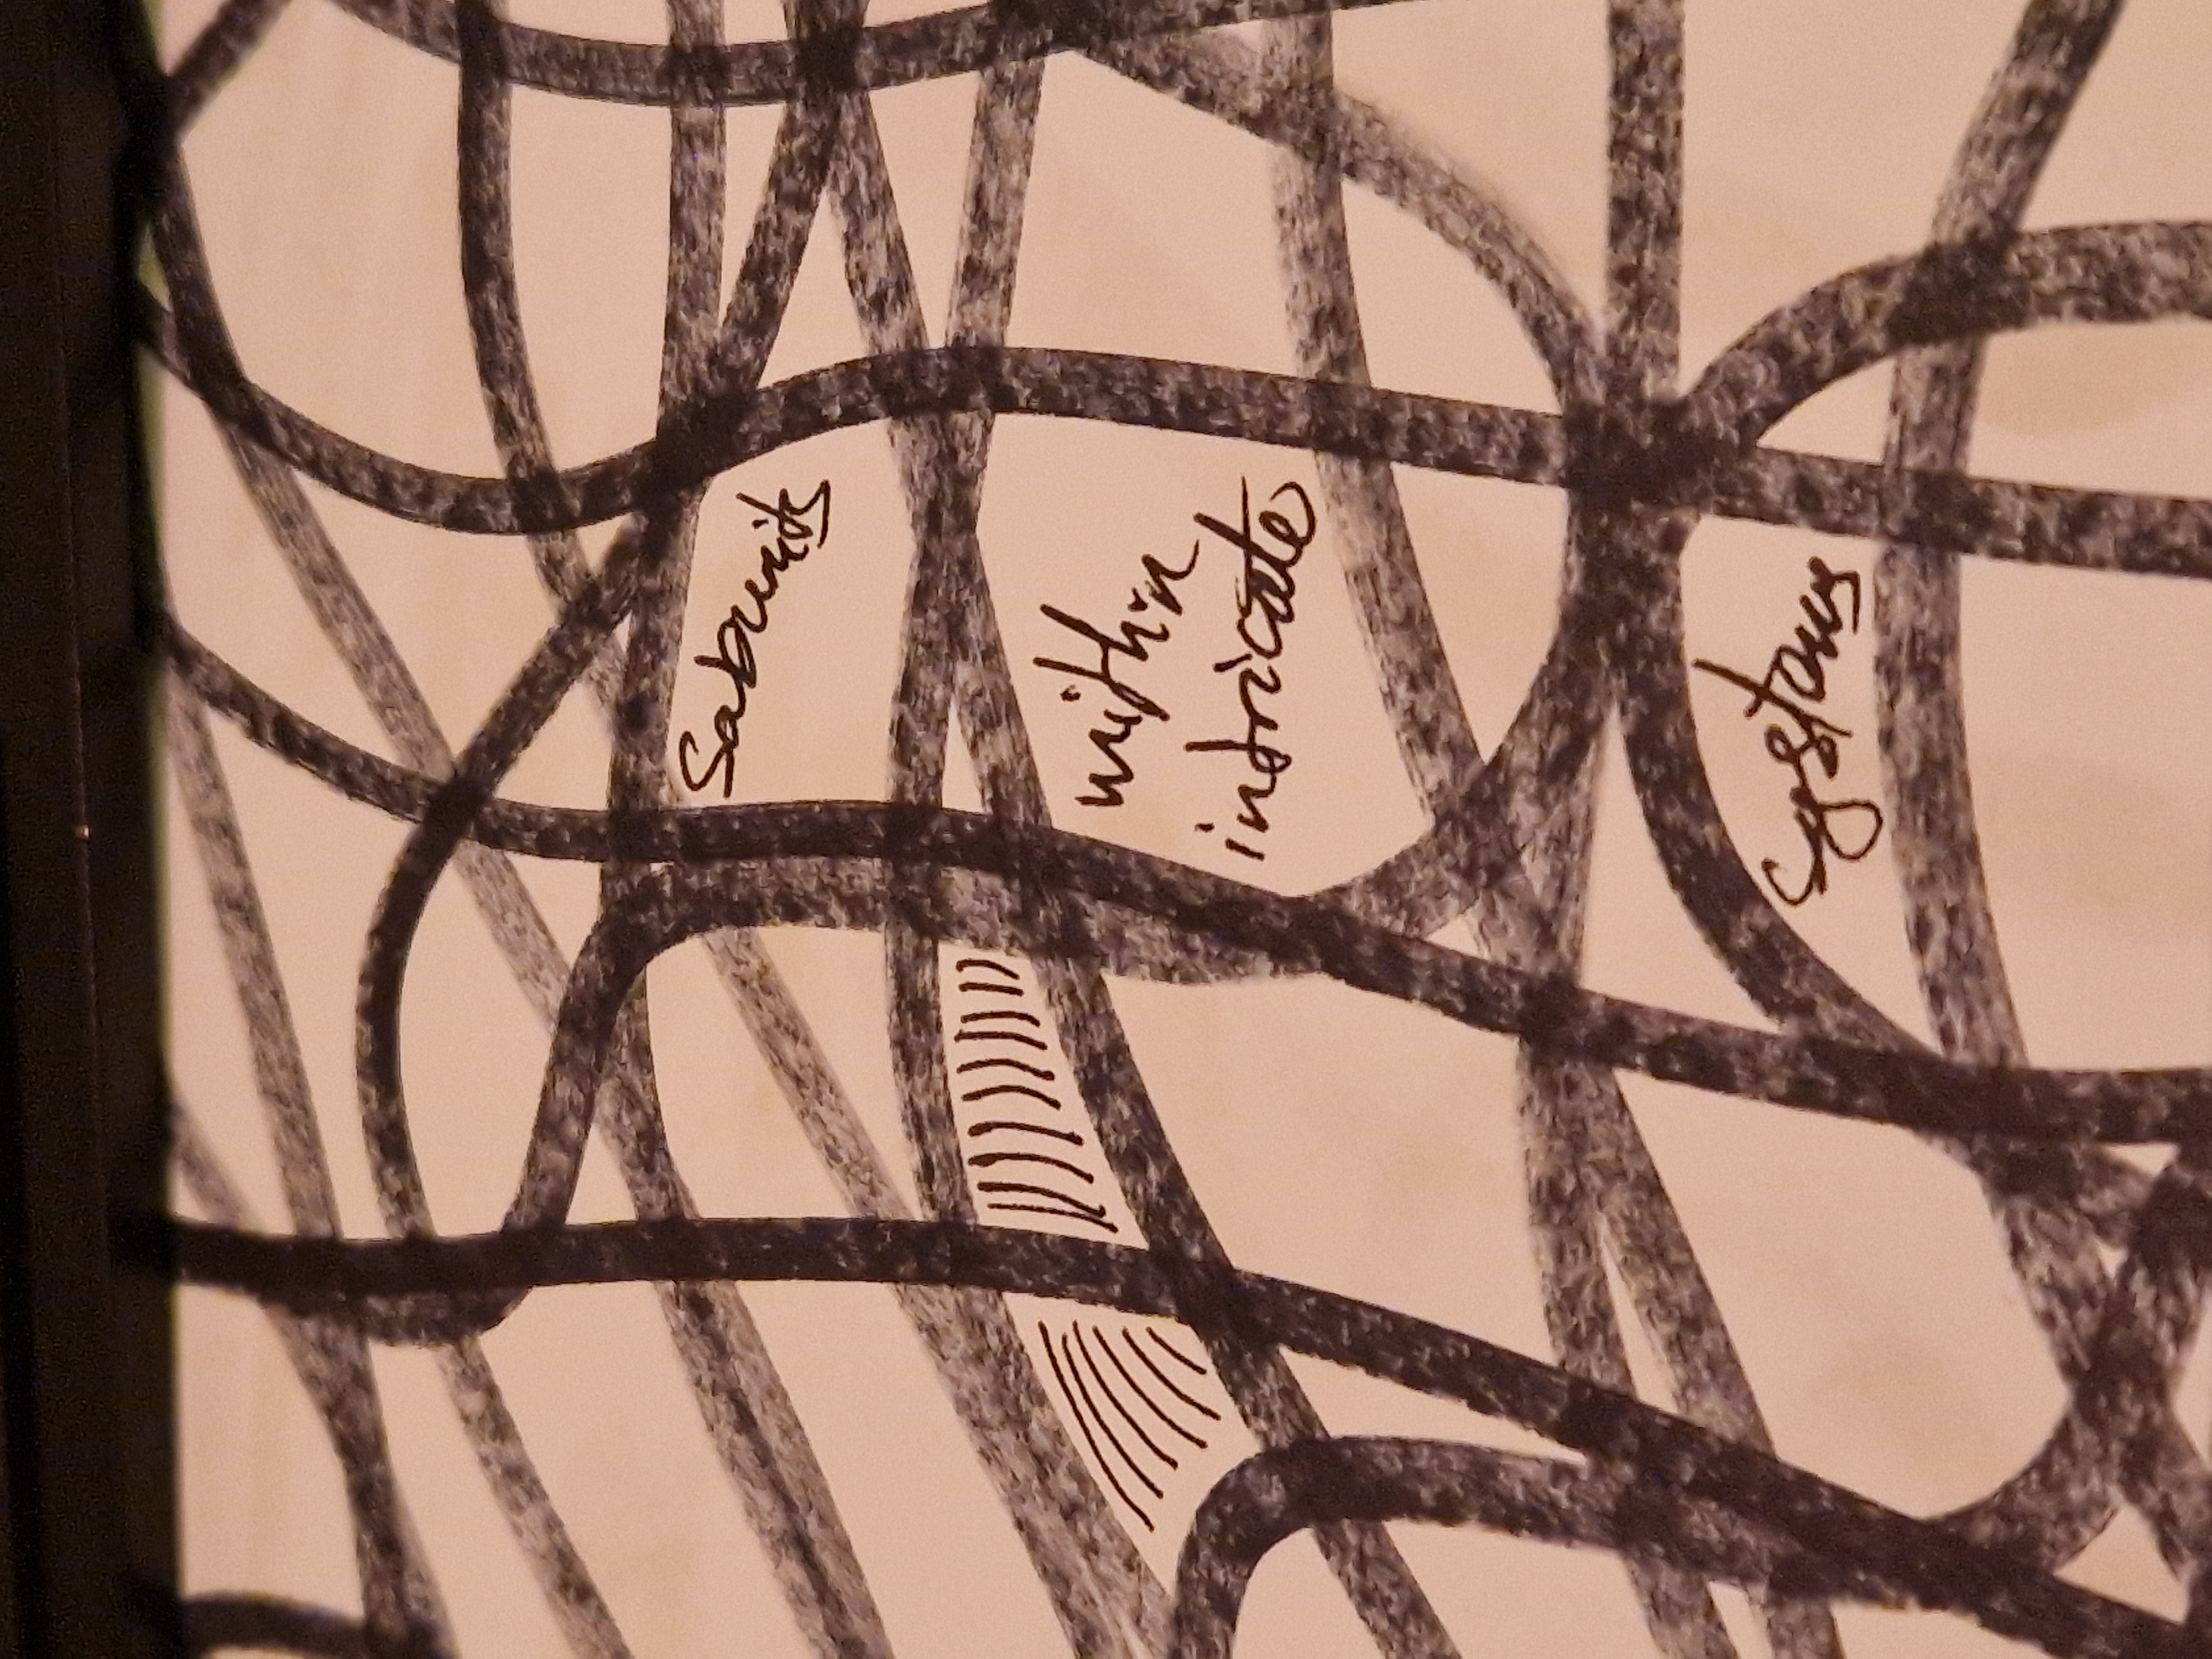 Subunits
within
intricate
systems